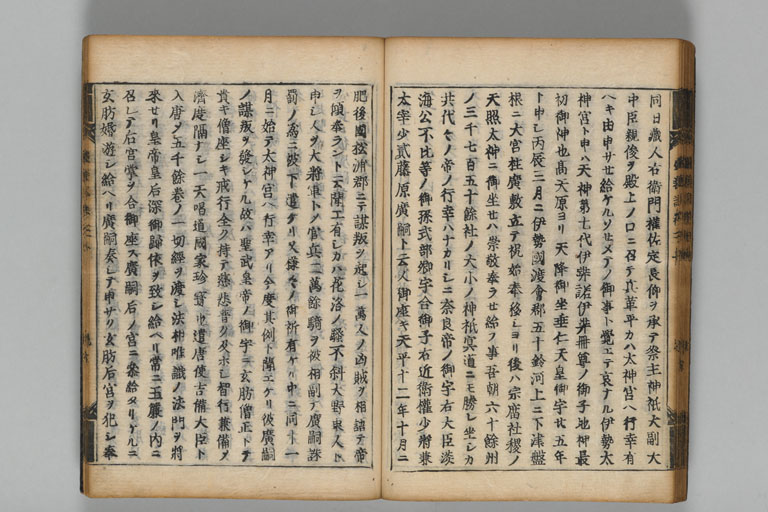 同日蔵人右衛門權佐定長仰ヲ承テ祭主神祇大副大
中臣親俊ヲ殿上ノ口ニ召テ真革平カハ太神宮ヘ行幸有
ヘキ由申サセ給ケルソセメテノ御事ト覺エテ哀ナル伊勢太
神宮ト申ハ天神第七代伊弉諾伊弉冊尊ノ御子地神最
初御神也高天原ヨリ天降御坐垂仁天皇御宇廿五年
ト申シ丙辰三月ニ伊勢國渡會郡五十鈴河上ニ下津盤
根ニ大宮柱廣敷立テ祝始奉後シヨリ後ハ宗廟社稷ノ
天照太神ニ御坐セハ崇敬奉ラセ給フ事吾朝六十餘州
ノ三千七百五十餘社ノ大小ノ神祇冥道ニモ勝レ坐シカ
共代々ノ帝ノ行幸ハナカリシニ奈良帝ノ御宇右大臣淡
海公不比等ノ御孫式部卿宇合御子右近衛權少將兼
太宰少貳藤原廣嗣ト云人御座キ天平十二年十月ニ
肥後國松浦郡ニテ謀叛ヲ起シ一萬人ノ凶賊ヲ相語テ帝
ヲ傾奉ラント云聞エ有シカハ花洛ノ騒不斜大野東人ト
申シ人ヲ大將軍トノ官兵二萬餘騎ヲ被相副テ廣嗣誅
罰ノ為ニ被下遣ケリ又樣々ノ御祈有ケリ中ニ同十一
月ニ始テ太神宮ヘ行幸アリ今度其例ト聞エケリ彼廣嗣
ノ謀叛ヲ發シケル故ハ聖武皇帝ノ御宇ニ玄肪僧正トテ
貴キ僧座シキ戒行全ク持テ慈悲普ク及ホシ智行兼備ヲ
濟度隔ナシ一天唱道國家珍寳也遣唐使吉備大臣ト
入唐シテ五千餘卷ノ一切經ヲ渡シ法相唯識ノ法門ヲ將
來セリ皇帝皇后深御歸依ヲ致シ給ヘリ常ニ玉簾ノ内ニ
召レテ右宮掌ヲ合御座ス廣嗣后ノ宮ニ參給タリケルニ
玄肪婚遊シ給ヘリ廣嗣奏シテ申サク玄肪后宮ヲ犯シ奉